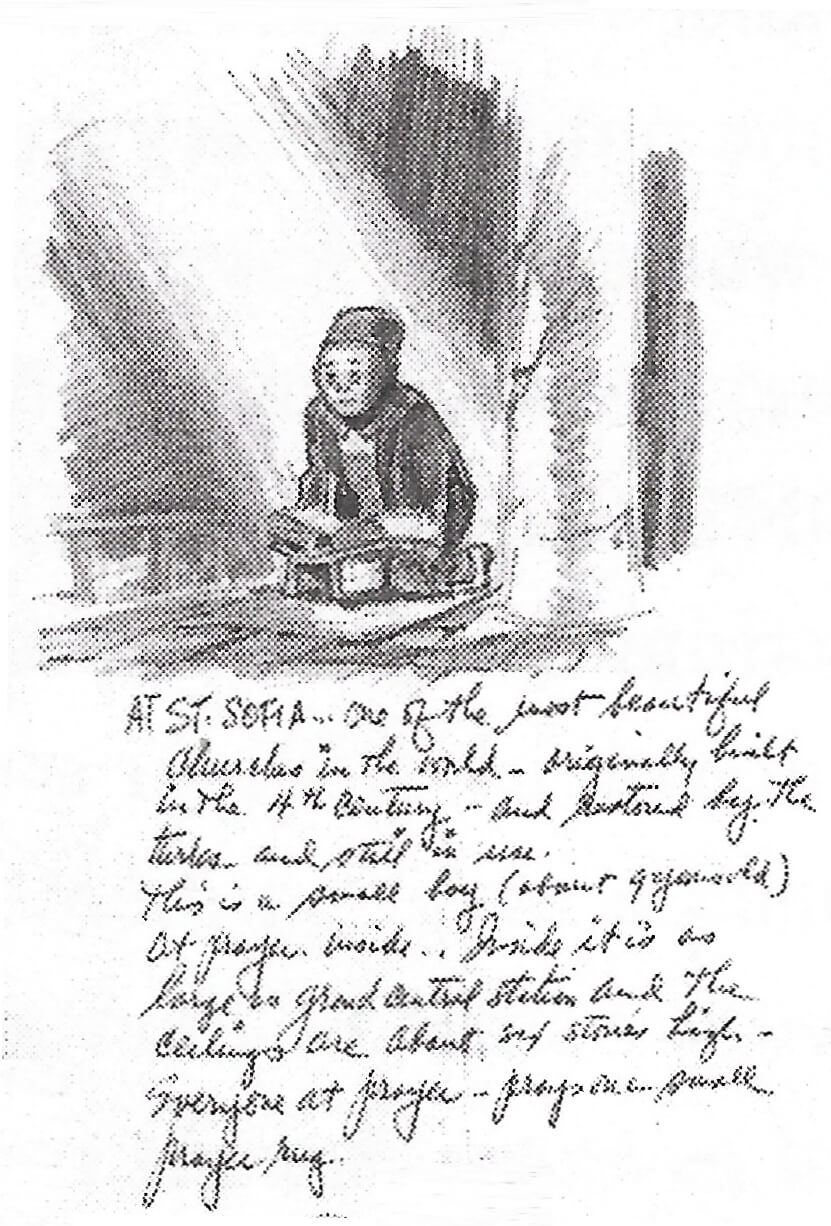 AT ST. SOFIA... one of the most beautiful
Churches in the world - originally built
in the 4th Century - and restored by the
turks and still in use.
This is a small boy (about 9 years old)
at prayer inside... Inside it is as
large as grand central station and the
ceilings are about six stories high -
Everyone at prayer - prays on a small
prayer rug.